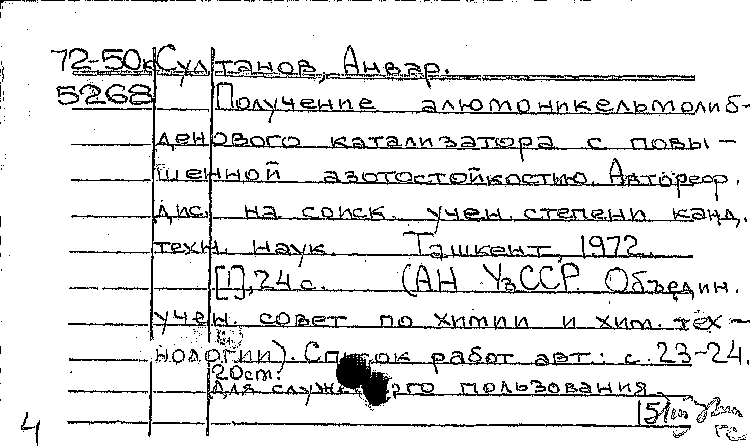 72-50к Султанов, Анвар.
5268 Получение алюмоникельмолиб-
денового катализатора с повы-
шенной азотостойкостью. Автореф.
дис. на соиск. учен. степени канд.
техн. наук. Ташкент, 1972.
[1], 24 с. (АН УзССР. Объедин.
учен. совет по химии и хим. тех-
нологии). Список работ авт.: с. 23-24.
20см.
Для служебного пользования
4